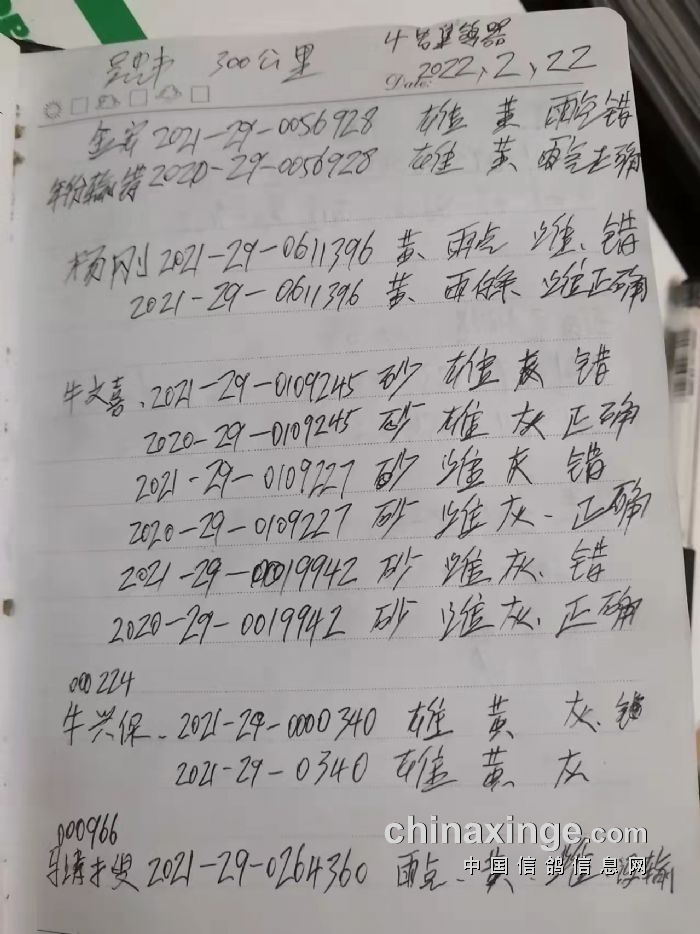 300公里 4号集鸽器
Date: 2022,2,22
2021-29-0056928 雄 黄 雨点 错
年份输错 2020-29-0056928 雄 黄、雨点正确
杨刚 2021-29-0611396 黄、雨点 雌、错
2021-29-0611396 黄、雌正确
牛文喜、2021-29-0109245 砂 雄 灰 错
2020-29-0109245 砂 雄 灰 正确
2021-29-0109227 砂 雌 灰 错
2020-29-0109227 砂 雌 灰、正确
2021-29-0019942 砂 雌 灰、错
2020-29-0019942 砂 雌 灰、正确
000224
牛兴保、2021-29-0000340 雄 黄 灰、错
2021-29-0340 雄 黄 灰
000966
2021-29-0264360 雨点、黄、雌 输
chinaxinge.com
中国信鸽信息网